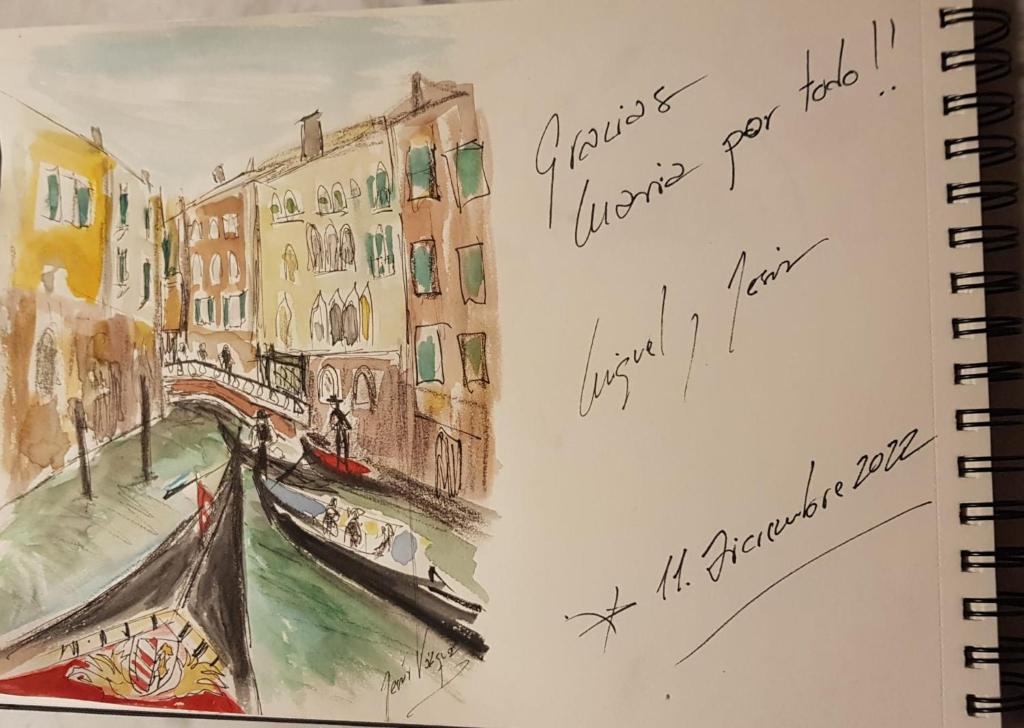 Gracias
Maria por todo!!
Miguel y Jesús
* 11. Diciembre 2022
Jesús Vázquez